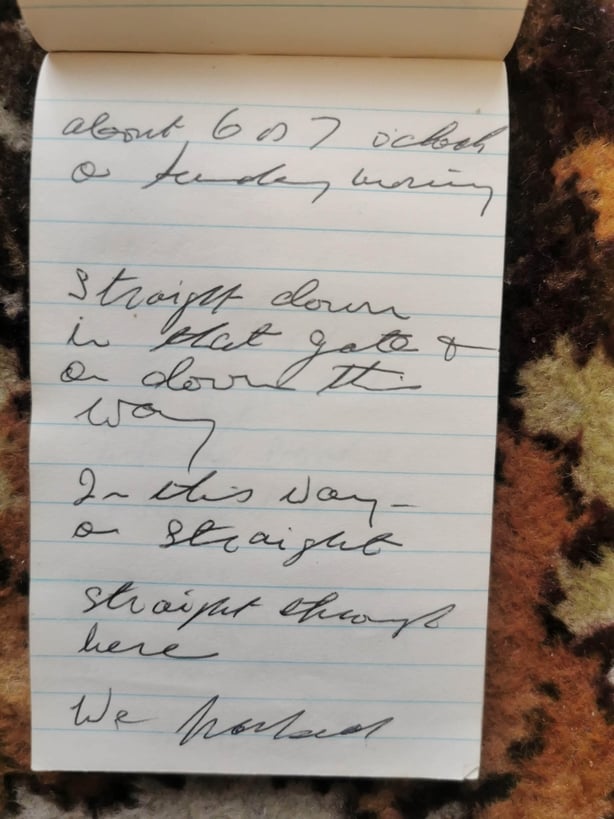 about 6 or 7 o'clock
on Sunday morning
straight down
in that gate &
on down this
way
In this way -
on straight
straight through
here
We parked